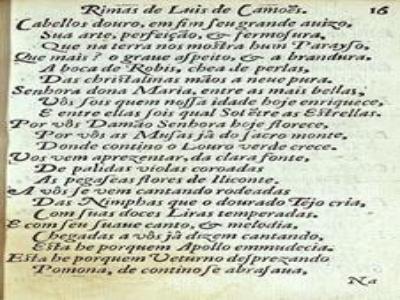 Rimas de Luis de Camoẽs. 16
Cabellos douro, em fim seu grande auizo,
Sua arte, perfeição, & fermosura,
Que na terra nos mostra hum Parayso,
Que mais? o graue aspeito, & a brandura.
A boca de Robis, chea de perlas,
Das christalinas mãos a neue pura.
Senhora dona Maria, entre as mais bellas,
Vôs sois quem nossa idade hoje enriquece,
E entre ellas sois qual Sol ẽtre as Estrellas.
Por vôs Damão Senhora hoje florece,
Por vôs as Musas já do sacro monte,
Donde contino o Louro verde crece.
Vos vem aprezentar, da clara fonte,
De palidas violas coroadas
As pegaseas flores de Iliconte.
A vôs se vem cantando rodeadas
Das Nimphas que o dourado Tejo cria,
Com suas doces Liras temperadas.
E com seu suaue canto, & melodia,
Chegadas a vôs já dizem cantando,
Esta he porquem Apollo emmudecia.
Esta he porquem Veturno desprezando
Pomona, de contino se abrasaua.
Na